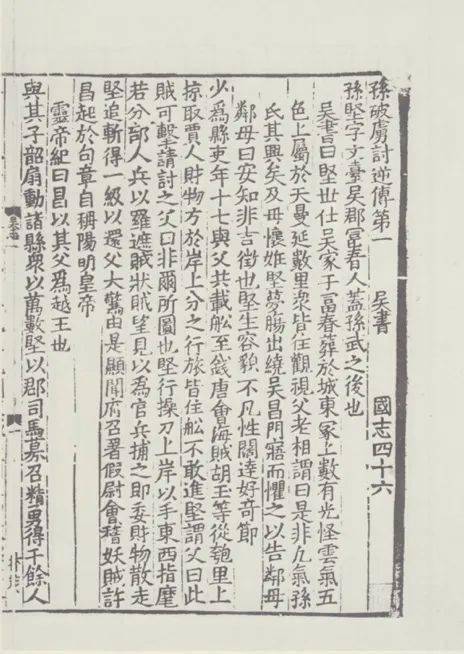 孫破虜討逆傳第一　吳書　國志四十六
孫堅字文臺吳郡富春人蓋孫武之後也
吳書曰堅世仕吳家于富春葬於城東冢上數有光怪雲氣五
色上屬於天曼延數里衆皆往觀視父老相謂曰是非凡氣孫
氏其興矣及母懷姙堅夢腸出繞吳昌門寤而懼之以告鄰母
鄰母曰安知非吉徵也堅生容貌不凡性闊達好奇節
少爲縣吏年十七與父共載舩至錢唐會海賊胡玉等從匏里上
掠取賈人財物方於岸上分之行旅皆住舩不敢進堅謂父曰此
賊可擊請討之父曰非爾所圖也堅行操刀上岸以手東西指麾
若分部人兵以羅遮賊狀賊望見以爲官兵捕之即委財物散走
堅追斬得一級以還父大驚由是顯聞府召署假尉會稽妖賊許
昌起於句章自稱陽明皇帝
靈帝紀曰昌以其父爲越王也
與其子韶扇動諸縣衆以萬數堅以郡司馬募召精勇得千餘人